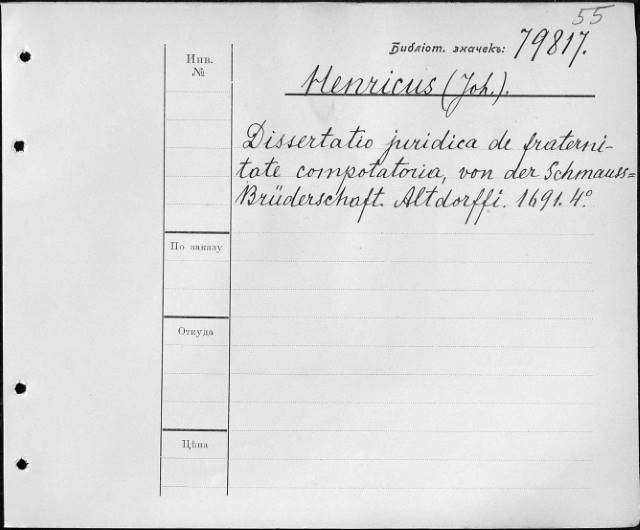 55
Библіот. значекъ: 79817.
Инв.
№
Henricus (Joh.).
Dissertatio juridica de fraterni-
tate compotatoria, von der Schmauss=
Brüderschaft. Altdorffi. 1691. 4°
По заказу
Откуда
Цѣна